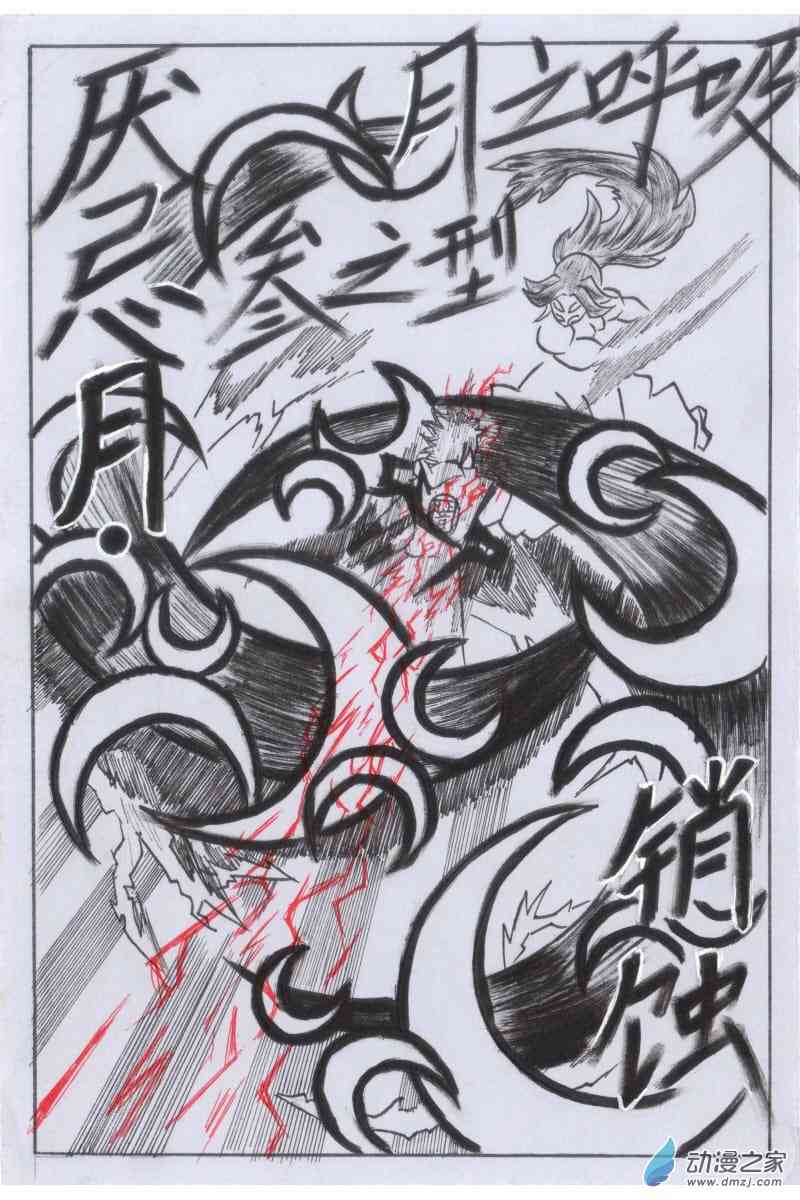 月之呼吸
叁之型
厌忌月
销蚀
动漫之家
www.dmzj.com